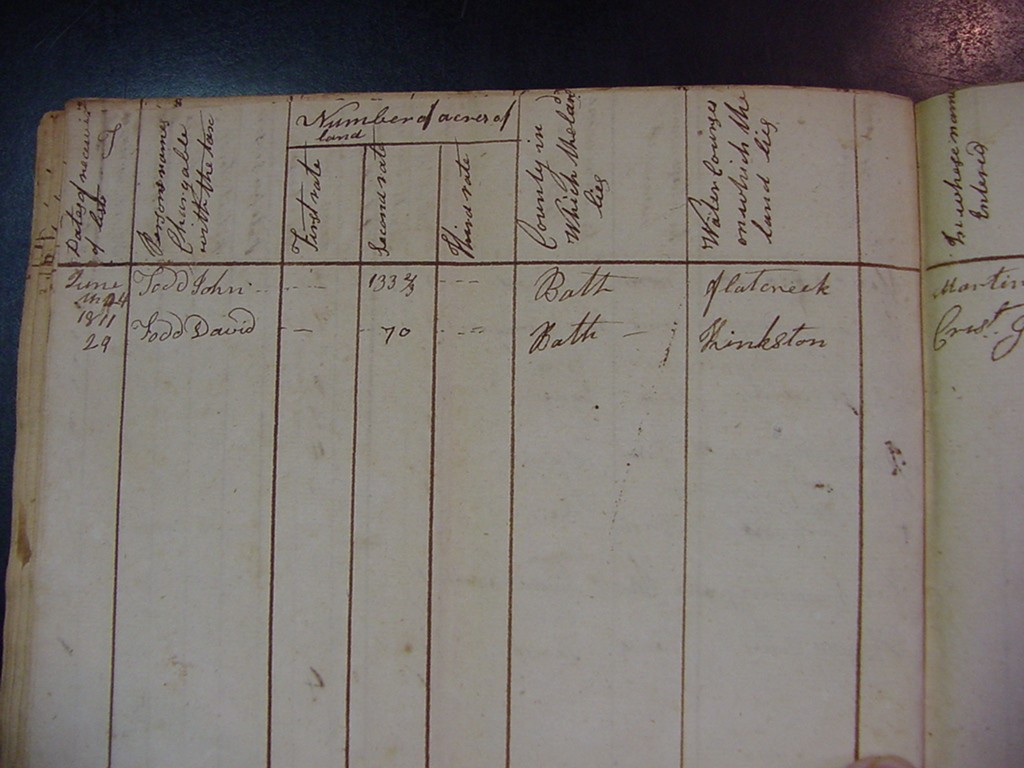 Dates of receiving
of lists
Persons names
Chargable
with the tax
Number of acres of
land
First rate
Second rate
Third rate
County in
Which the land
lies
Water Courses
on which the
land lies
In whose name
Entered
June Todd John --- 133 2/3 --- Bath flatcreek Martin
24
1811
29 Todd David -- 70 --- Bath Hinkston